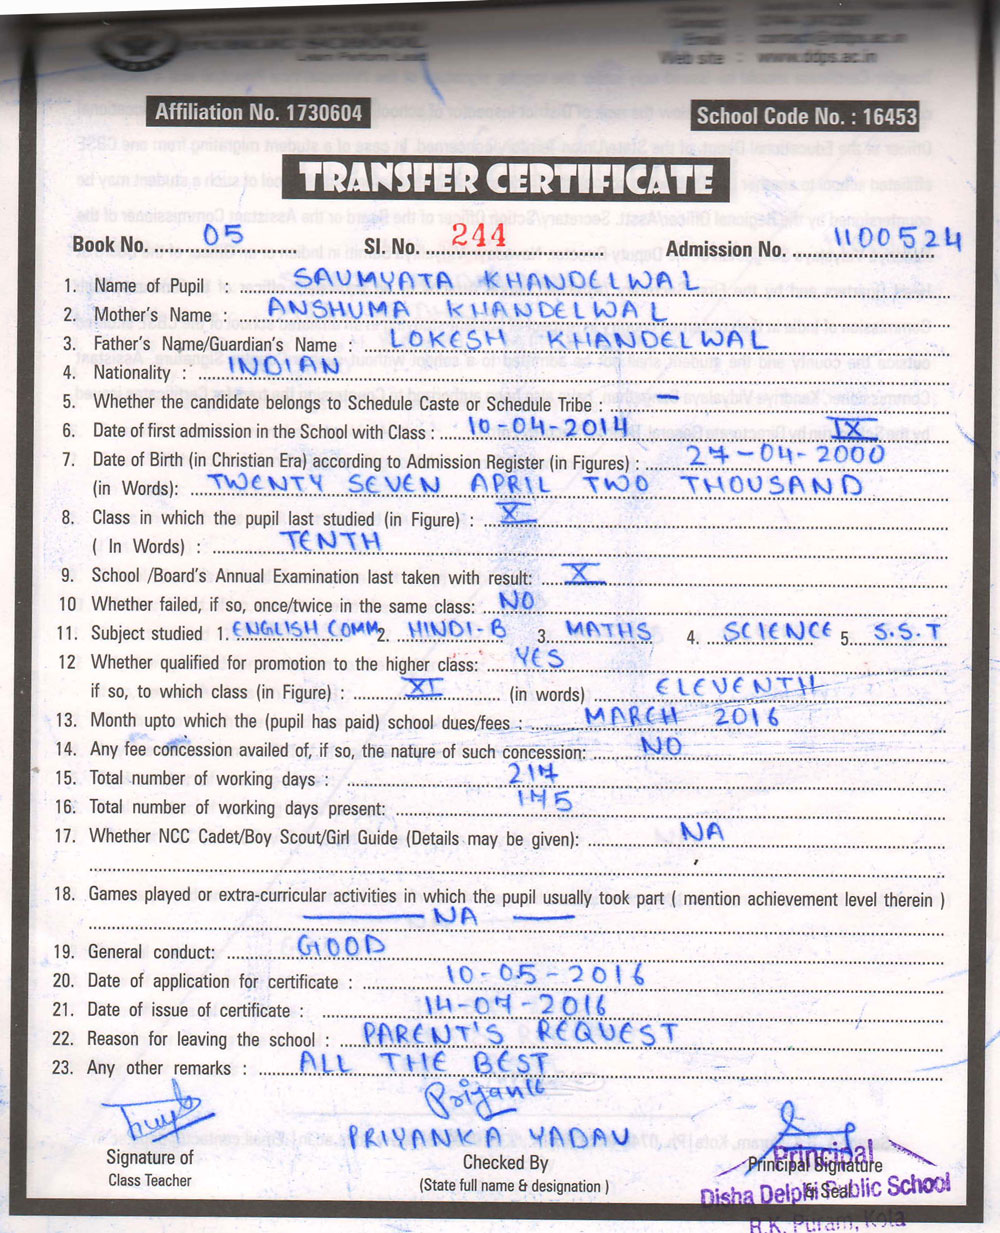 PUBLIC SCHOOL
Web site : www.ddps.ac.in
Affiliation No. 1730604
School Code No. : 16453
TRANSFER CERTIFICATE
Book No. 05 Sl. No. 244 Admission No. 1100524
1. Name of Pupil : SAUMYATA KHANDELWAL
2. Mother's Name : ANSHUMA KHANDELWAL
3. Father's Name/Guardian's Name : LOKESH KHANDELWAL
4. Nationality : INDIAN
5. Whether the candidate belongs to Schedule Caste or Schedule Tribe : —
6. Date of first admission in the School with Class : 10-04-2014 IX
7. Date of Birth (in Christian Era) according to Admission Register (in Figures) : 27-04-2000
(in Words): TWENTY SEVEN APRIL TWO THOUSAND
8. Class in which the pupil last studied (in Figure) : X
( In Words) : TENTH
9. School /Board's Annual Examination last taken with result: X
10 Whether failed, if so, once/twice in the same class: NO
11. Subject studied 1. ENGLISH COMM 2. HINDI-B 3. MATHS 4. SCIENCE 5. S.S.T
12 Whether qualified for promotion to the higher class: YES
if so, to which class (in Figure) : XI (in words) ELEVENTH
13. Month upto which the (pupil has paid) school dues/fees : MARCH 2016
14. Any fee concession availed of, if so, the nature of such concession: NO
15. Total number of working days : 217
16. Total number of working days present: 175
17. Whether NCC Cadet/Boy Scout/Girl Guide (Details may be given): NA
18. Games played or extra-curricular activities in which the pupil usually took part ( mention achievement level therein )
— NA —
19. General conduct: GOOD
20. Date of application for certificate : 10-05-2016
21. Date of issue of certificate : 14-07-2016
22. Reason for leaving the school : PARENT'S REQUEST
23. Any other remarks : ALL THE BEST
PRIYANKA YADAV
Signature of
Class Teacher
Checked By
(State full name & designation )
Principal Signature
& Seal
Principal
Disha Delphi Public School
R.K. Puram, Kota